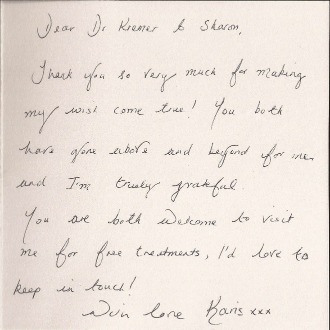 Dear Dr Kramer & Sharon,
Thank you so very much for making
my wish come true! You both
have gone above and beyond for me
and I'm truely grateful.
You are both welcome to visit
me for free treatments, I'd love to
keep in touch!
love Karis xxx